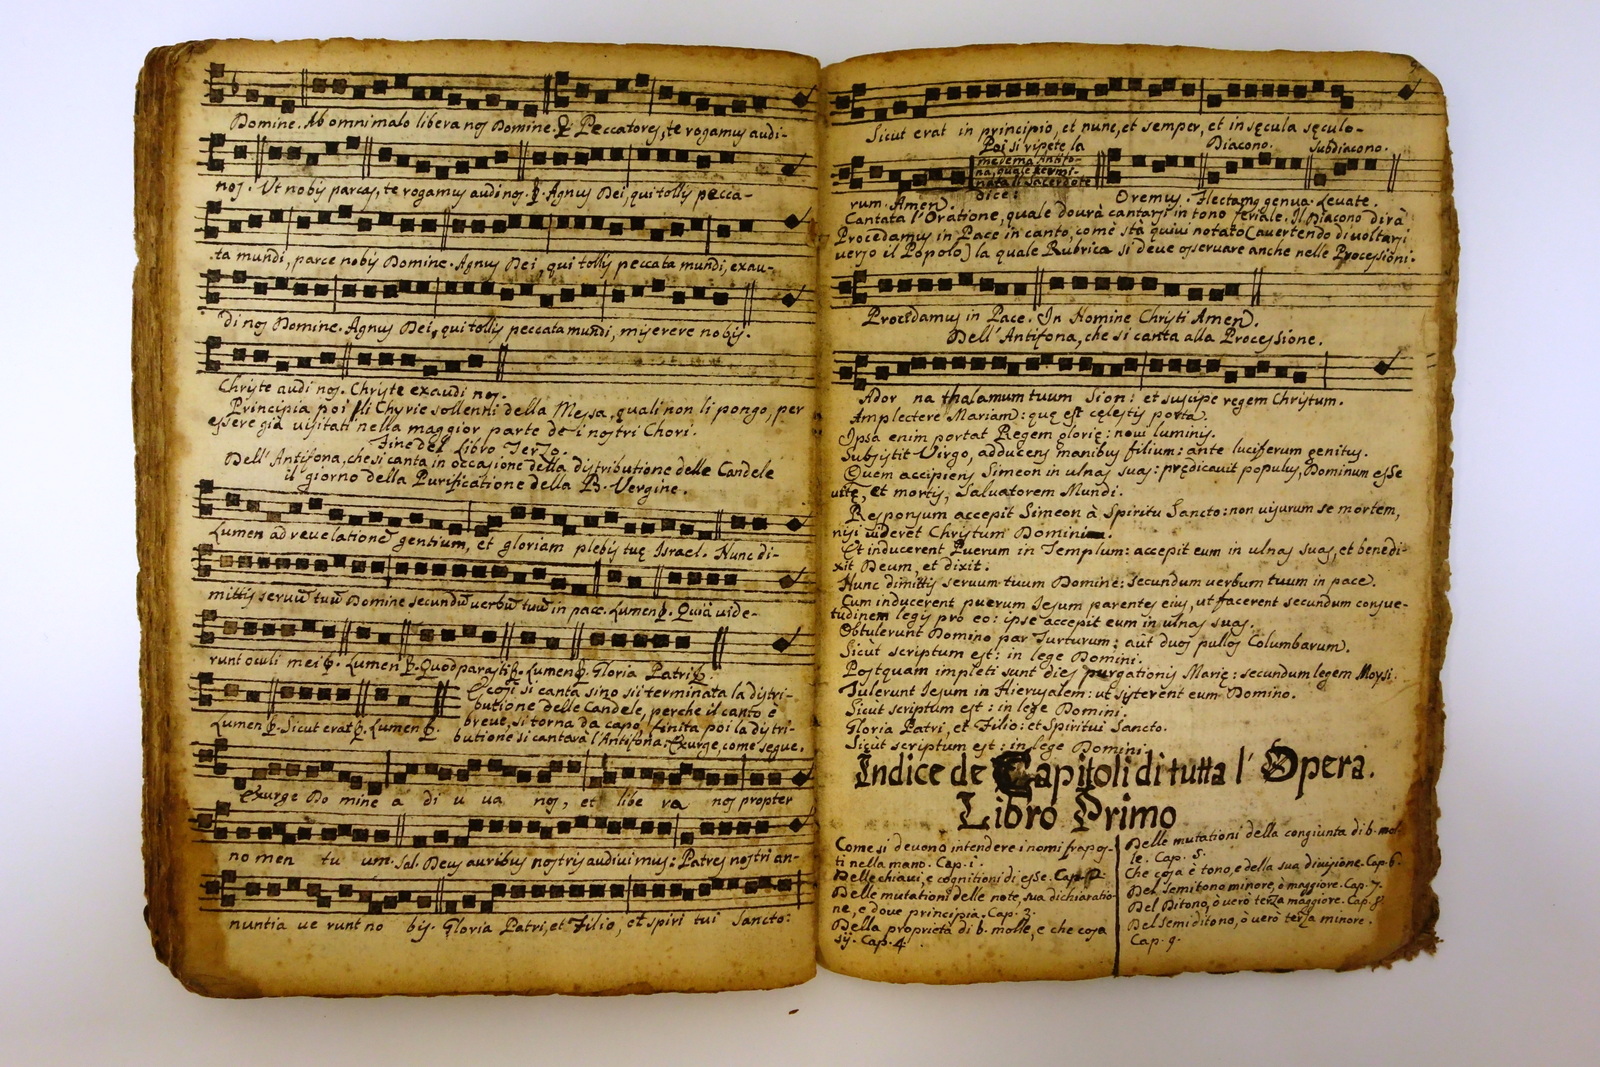 Domine. Ab omni malo libera nos Domine. ℣ Peccatores, te rogamus audi-
nos. Ut nobis parcas, te rogamus audi nos. ℣. Agnus Dei, qui tollis pecca-
ta mundi, parce nobis Domine. Agnus Dei, qui tollis peccata mundi, exau-
di nos Domine. Agnus Dei, qui tollis peccata mundi, miserere nobis.
Christe audi nos. Christe exaudi nos.
Principia poi li Chyrie sollenni della Messa, quali non li pongo, per
essere già visitati nella maggior parte de i nostri Chori.
Fine del Libro Terzo.
Dell' Antifona, che si canta in occasione della distributione delle Candele
il giorno della Purificatione della B. Vergine.
Lumen ad revelatione gentium, et gloriam plebis tuę Israel. Nunc di-
mittis servū tuū Domine secundū verbū tuū in pace. Lumen ℣. Quià vide-
runt oculi mei ℣. Lumen ℣. Quod parasti ℣. Lumen ℣. Gloria Patri ℣.
Lumen ℣. Sicut erat ℣. Lumen ℣.
E così si canta sino sii terminata la distri-
butione delle Candele, perche il canto è
breve, si torna da capo, Finita poi la distri-
butione si cantarà l'Antifona. Exurge, come segue.
Exurge Do mine a di u va nos, et libe ra nos propter
nomen tu um. Sal. Deus auribus nostris audivimus: Patres nostri an-
nuntia ve runt no bis. Gloria Patri, et Filio, et spiri tui Sancto:
Sicut erat in principio, et nunc, et semper, et in sęcula sęculo-
Poi si ripete la
medema Antifo-
na, quale termi-
nata li Sacerdote
dice:
Diacono. Subdiacono.
rum. Amen. Oremus. Flectamg genua. Levate.
Cantata l'Oratione, quale dourà cantarsi in tono feriale. Il Diacono dirà
Procedamus in Pace in canto, come stà quivi notato (avertendo di voltarsi
verso il Popolo) la quale Rubrica si deve osservare anche nelle Processioni.
Procedamus in Pace. In Nomine Christi Amen.
Dell' Antifona, che si canta alla Processione.
Ador na thalamum tuum Sion: et suscipe regem Christum.
Amplectere Mariam: quę est cęlestis porta.
Ipsa enim portat Regem glorię: novi luminis.
Subsistit Virgo, adducens manibus filium: ante luciferum genitus.
Quem accipiens Simeon in ulnas suas: prędicavit populus, Dominum esse
vitę, et mortis, Salvatorem Mundi.
Responsum accepit Simeon à Spiritu Sancto: non visurum se mortem,
nisi videret Christum Domini.
Et inducerent Puerum in Templum: accepit eum in ulnas suas, et benedi-
xit Deum, et dixit.
Nunc dimittis servum tuum Domine: secundum verbum tuum in pace.
Cum inducerent puerum Iesum parentes eius, ut facerent secundum consue-
tudinem legis pro eo: ipse accepit eum in ulnas suas.
Obtulerunt Domino par Turturum: aut duos pullos Columbarum.
Sicùt scriptum est: in lege Domini.
Postquam impleti sunt dies purgationis Marię: secundum legem Moysi.
Tulerunt Iesum in Hierusalem: ut sisterent eum Domino.
Sicut scriptum est: in lege Domini.
Gloria Patri, et Filio: et Spiritui Sancto.
Sicùt scriptum est: in lege Domini.
Indice de Capitoli di tutta l' Opera.
Libro Primo
Come si devono intendere i nomi frapos-
ti nella mano. Cap. 1.
Delle chiavi, e cognitioni di esse. Cap. 2.
Delle mutationi delle note, sua dichiaratio-
ne, e dove principia. Cap. 3.
Della proprietà di b. molle, e che cosa
sij. Cap. 4.
Delle mutationi della congiunta di b. mol-
le. Cap. 5.
Che cosa è tono, e della sua divisione. Cap. 6.
Del semitono minore, ò maggiore. Cap. 7.
Del Ditono, ò verò terza maggiore. Cap. 8.
Del semiditono, ò verò terza minore.
Cap. 9.